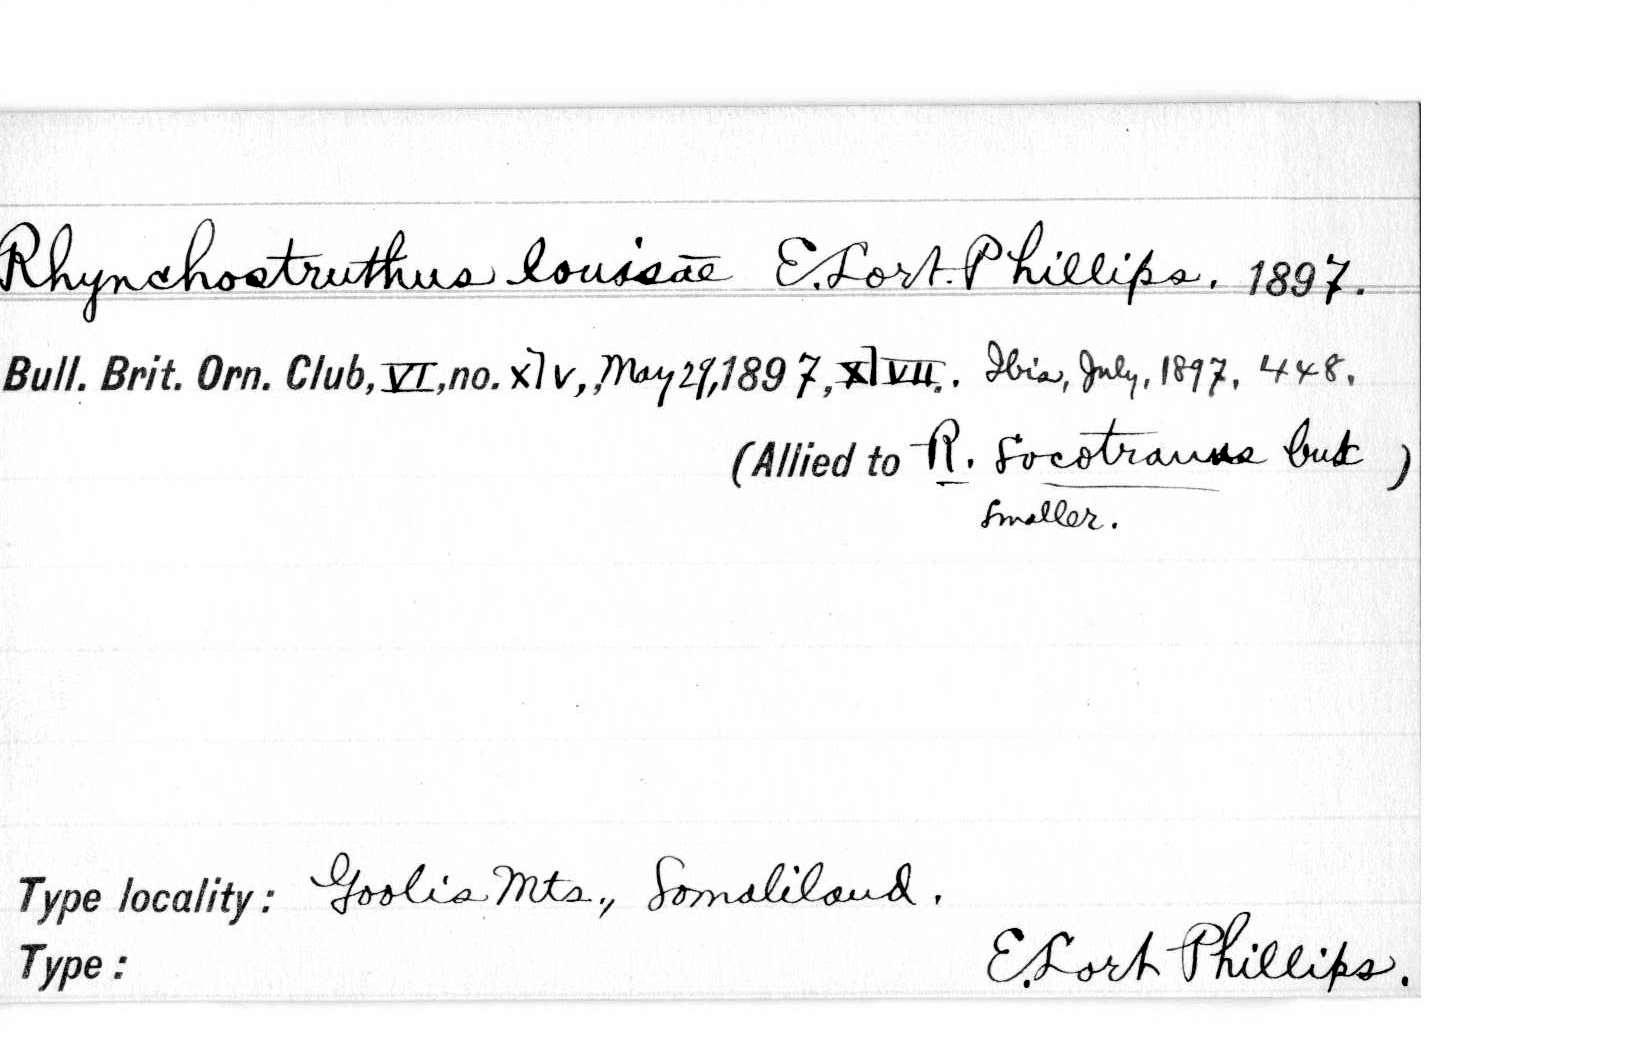 Rhynchostruthus louisae E. Lort. Phillips. 1897.
Bull. Brit. Orn. Club, VI, no. xlv, May 29, 1897, xlvii. Ibis, July, 1897, 448.
(Allied to R. socotranus but )
smaller.
Type locality: Goolis Mts., Somaliland.
Type: E. Lort Phillips.